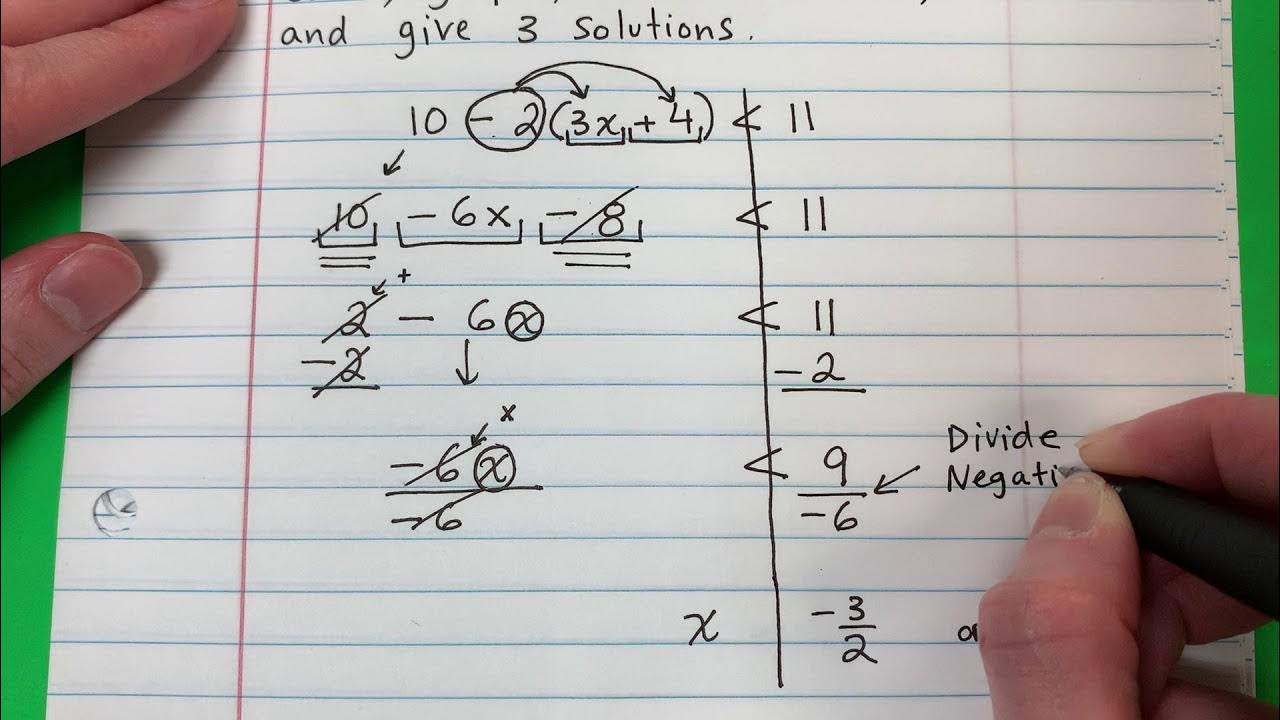 and give 3 solutions.
10 - 2(3x + 4) < 11
10 - 6x - 8 < 11
+
2 - 6x < 11
-2 -2
x
-6x < 9
-6 -6
Divide
Negati
x -3/2